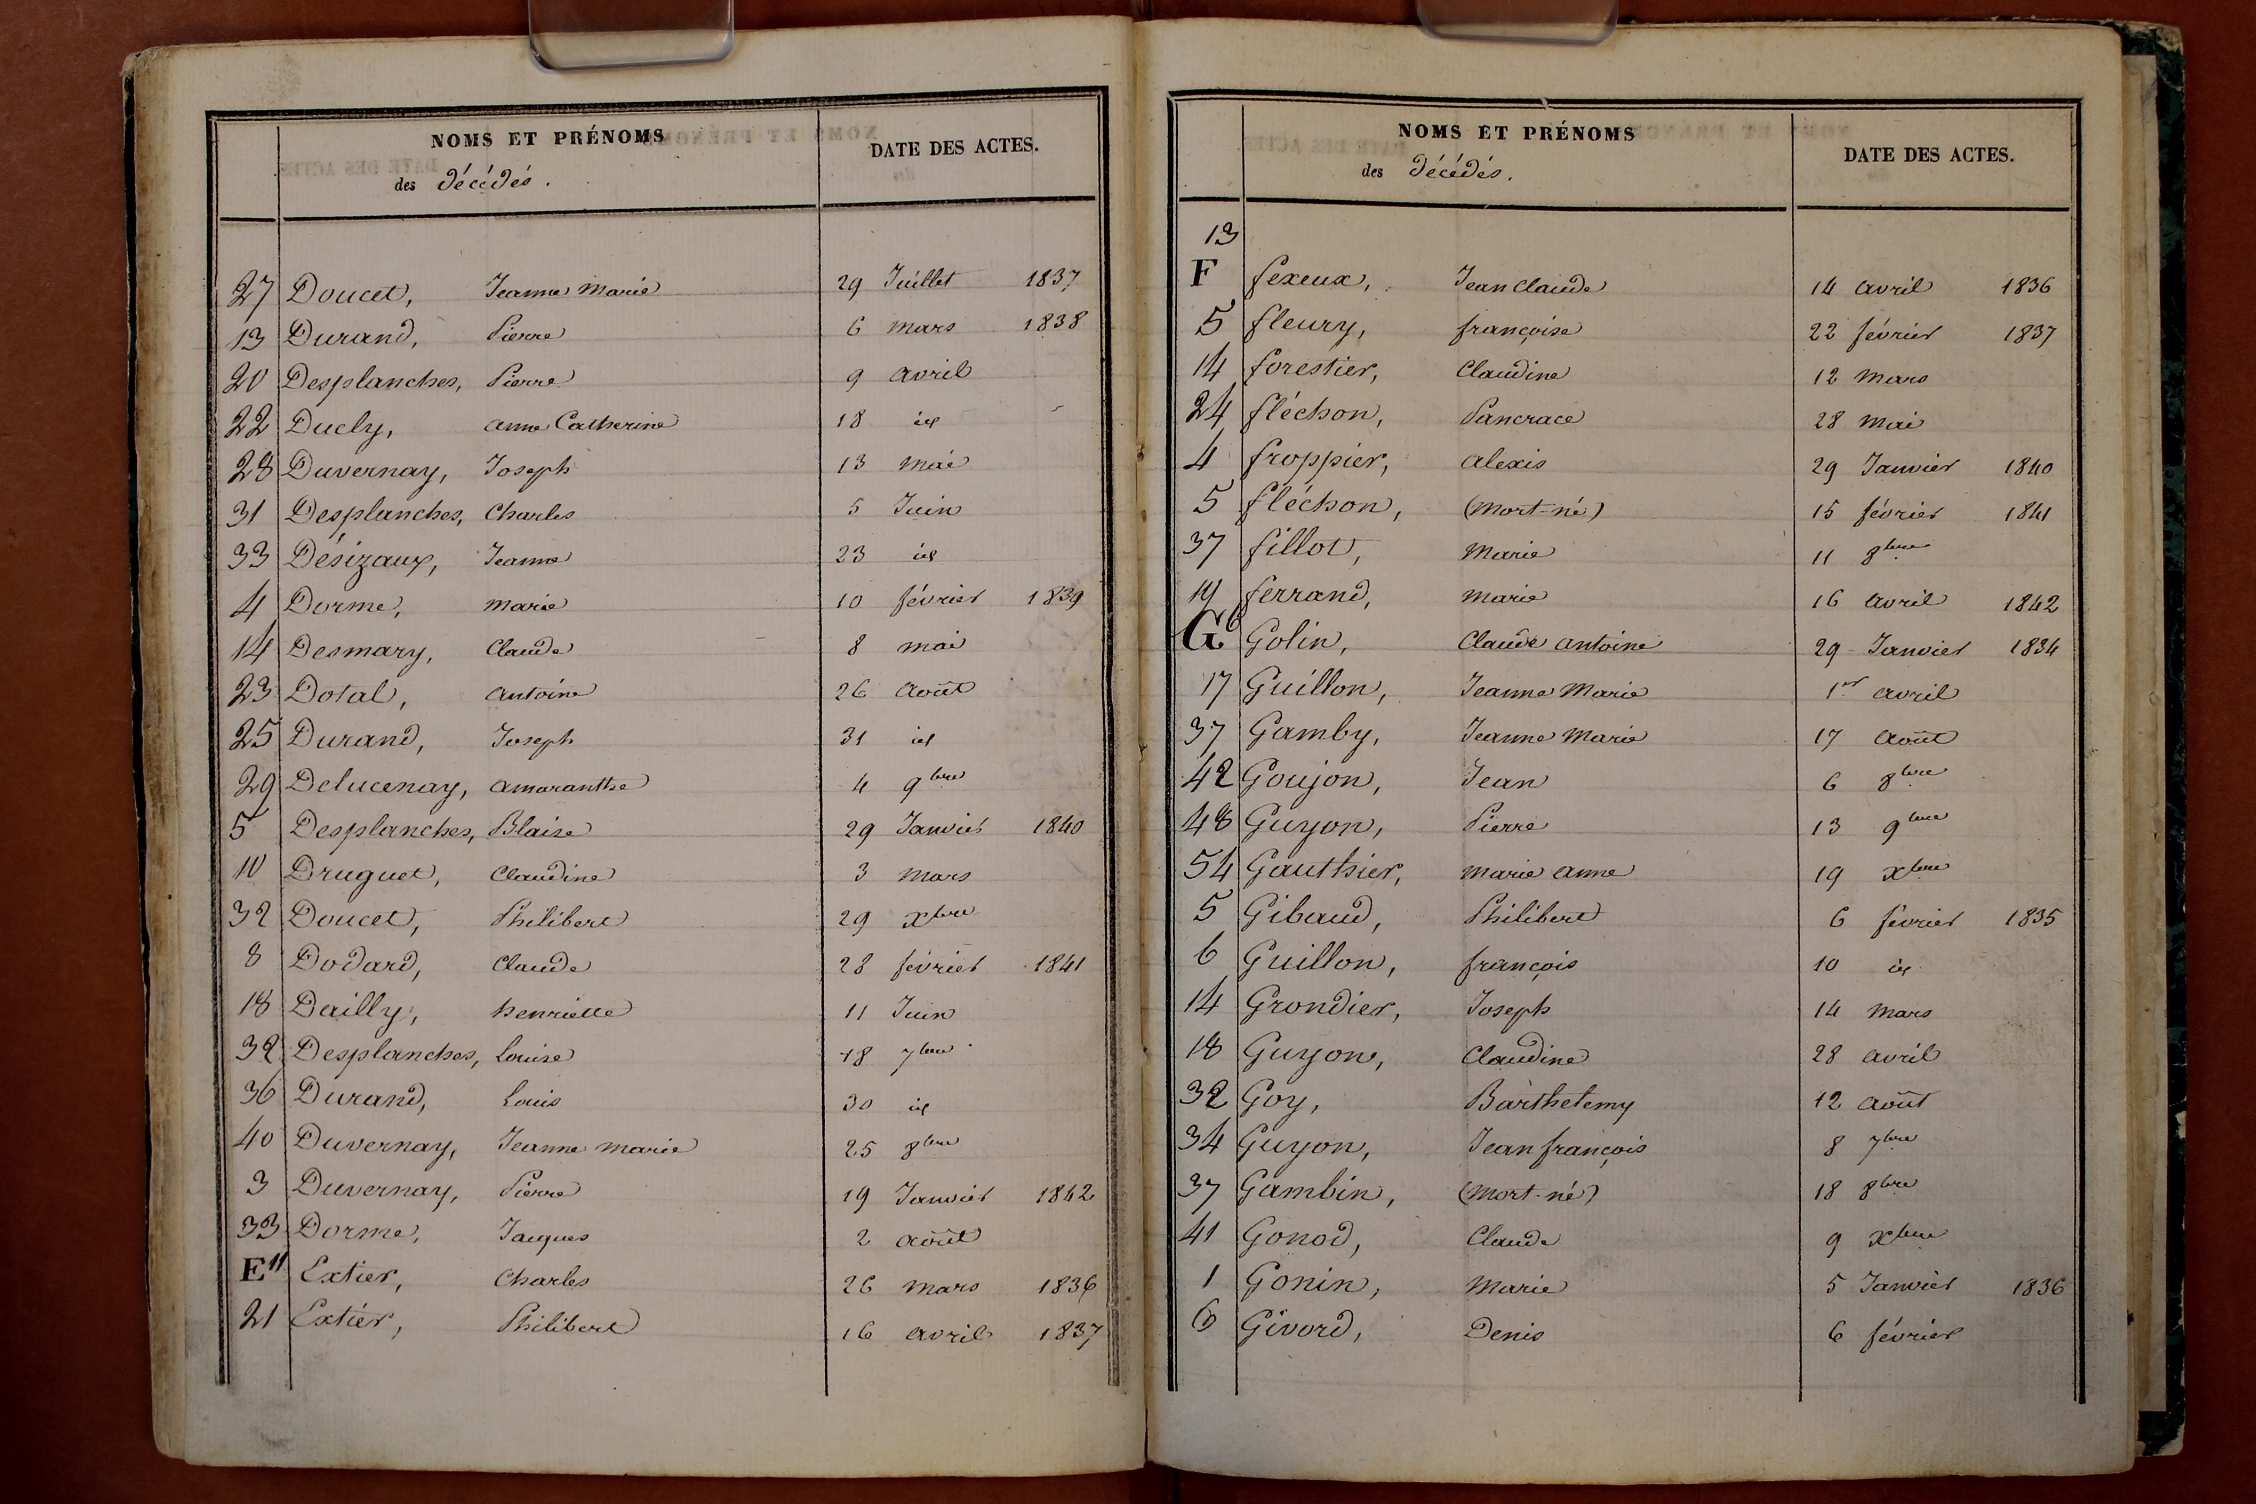 NOMS ET PRÉNOMS
des décédés.
DATE DES ACTES.
27 Doucet, Jeanne Marie 29 Juillet 1837
13 Durand, Pierre 6 mars 1838
20 Desplanches, Pierre 9 avril
22 Ducly, anne Catherine 18 id
28 Duvernay, Joseph 13 mai
31 Desplanches, Charles 5 Juin
33 Désizaux, Jeanne 23 id
4 Dorme, marie 10 février 1839
14 Desmary, Claude 8 mai
23 Dotal, antoine 26 août
25 Durand, Joseph 31 id
29 Delucenay, amaranthe 4 9bre
5 Desplanches, Blaise 29 Janvier 1840
10 Druguet, Claudine 3 mars
32 Doucet, Philibert 29 xbre
8 Dodard, Claude 28 février 1841
18 Dailly, henriette 11 Juin
32 Desplanches, Louise 18 7bre
36 Durand, Louis 30 id
40 Duvernay, Jeanne marie 25 8bre
3 Duvernay, Pierre 19 Janvier 1842
33 Dorme, Jacques 2 août
E 11 Extier, Charles 26 mars 1836
21 Extier, Philibert 16 avril 1837
NOMS ET PRÉNOMS
des décédés.
DATE DES ACTES.
13
F fexeux, Jean Claude 14 avril 1836
5 fleury, françoise 22 février 1837
14 forestier, Claudine 12 mars
24 fléchon, Pancrace 28 mai
4 froppier, alexis 29 Janvier 1840
5 fléchon, (mort-né) 15 février 1841
37 fillot, Marie 11 8bre
19 ferrand, marie 16 avril 1842
G 6 Golin, Claude antoine 29 Janvier 1834
17 Guillon, Jeanne Marie 1er avril
37 Gamby, Jeanne Marie 17 août
42 Goujon, Jean 6 8bre
48 Guyon, Pierre 13 9bre
54 Gauthier, marie anne 19 xbre
5 Gibaud, Philibert 6 février 1835
6 Guillon, françois 10 id
14 Grondier, Joseph 14 mars
18 Guyon, Claudine 28 avril
32 Goy, Barthelemy 12 août
34 Guyon, Jean françois 8 7bre
37 Gambin, (mort-né) 18 8bre
41 Gonod, Claude 9 xbre
1 Gonin, Marie 5 Janvier 1836
6 Givord, Denis 6 février